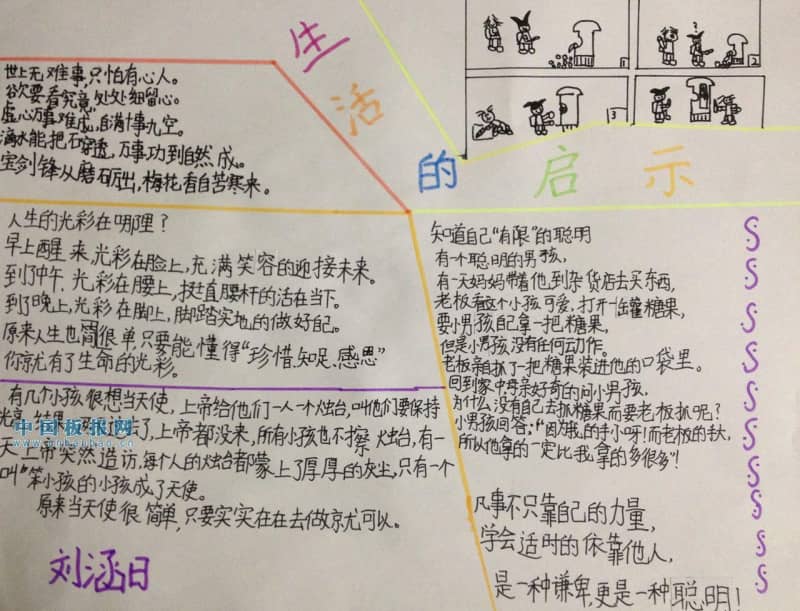 生活的启示
1
2
3
世上无难事,只怕有心人。
欲要看究竟,处处细留心。
虚心万事难成,自满十事九空。
滴水能把石穿透,万事功到自然成。
宝剑锋从磨石厉出,梅花看自苦寒来。
人生的光彩在哪哩?
早上醒来,光彩在脸上,充满笑容的迎接未来。
到了中午,光彩在腰上,挺直腰杆的活在当下。
到了晚上,光彩在脚上,脚踏实地的做好自己。
原来人生也很简单,只要能懂得“珍惜、知足、感恩”
你就有了生命的光彩。
有几个小孩很想当天使,上帝给他们一人一个烛台,叫他们要保持
光亮,结果 了,上帝都没来,所有小孩也不擦烛台,有一
天上帝突然造访,每个人的烛台都蒙上了厚厚的灰尘,只有一个
叫“笨小孩的小孩成了天使。
原来当天使很简单,只要实实在在去做就可以。
刘涵日
知道自己“有限”的聪明
有一个聪明的男孩,
有一天妈妈带着他到杂货店去买东西,
老板看这个小孩可爱,打开一罐糖果,
要小男孩自己拿一把糖果,
但是小男孩没有任何动作。
老板亲自抓了一把糖果装进他的口袋里。
回到家中母亲好奇的问小男孩,
为什么没有自己去抓糖果而要老板抓呢?
小男孩回答:“因为我的手小呀!而老板的手大,
所以他拿的一定比我拿的多很多”!
凡事不只靠自己的力量,
学会适时的依靠他人,
是一种谦卑,更是一种聪明!
中国板报网